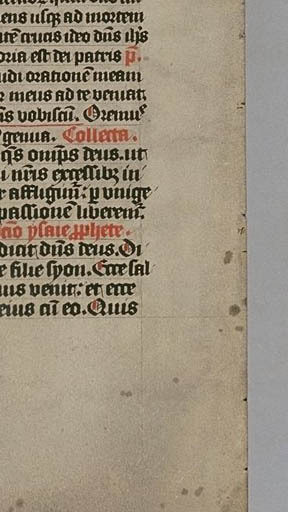 ens usq̄ ad mortem
tē crucis ideo dn̄s ih̄s
oria est dei patris p̄.
udi orationē meam
r meus ad te veniat
s vobiscū. Oremuˢ
genua. Collecta.
q̄s om̄ps deus. ut
i nr̄is excessibꝫ in
r affligim̄: ꝑ unige
passionē liberem̄.
cio ysaie ꝓphete.
dicit dn̄s deus. Di
e filie syon. Ecce sal
uus venit: et ecce
eius cū eo. Quis